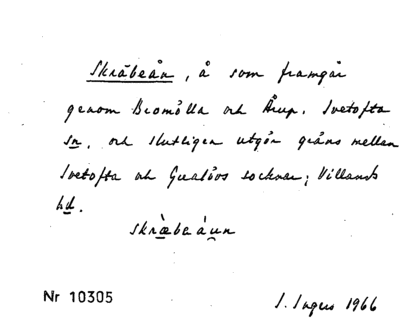 Skräbeån, å som framgår
genom Bromölla och Årup. Ivetofta
sn. och slutligen utgör gräns mellan
Ivetofta och Gualövs socknar; Villands
hd.
skræ̀beáun
Nr 10305
I. Ingers 1966